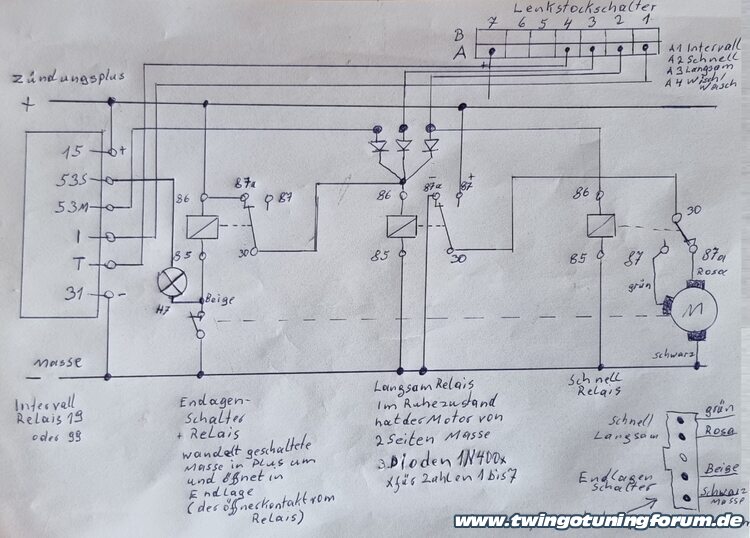 Lenkstockschalter
7 6 5 4 3 2 1
B
A
+
A1 Intervall
A2 Schnell
A3 Langsam
A4 Wisch/
Wasch
Zündungsplus
+
15 +
53S
53M
I
T
31 -
86
87a
87
30
85
H7
Beige
86
87a
-
87
+
30
85
86
30
87
87a
85
Rosa
grün
M
schwarz
Masse
Intervall
Relais 19
oder 99
Endlagen-
Schalter
+ Relais
wandelt geschaltete
Masse in Plus um
und öffnet in
Endlage
(der öffnerkontakt vom
Relais)
Langsam Relais
Im Ruhezustand
hat der Motor von
2 Seiten Masse
3 Dioden 1N400x
x für Zahlen 1 bis 7
Schnell
Relais
Schnell
Langsam
Endlagen
Schalter
grün
Rosa
Beige
Schwarz
Masse
www.twingotuningforum.de